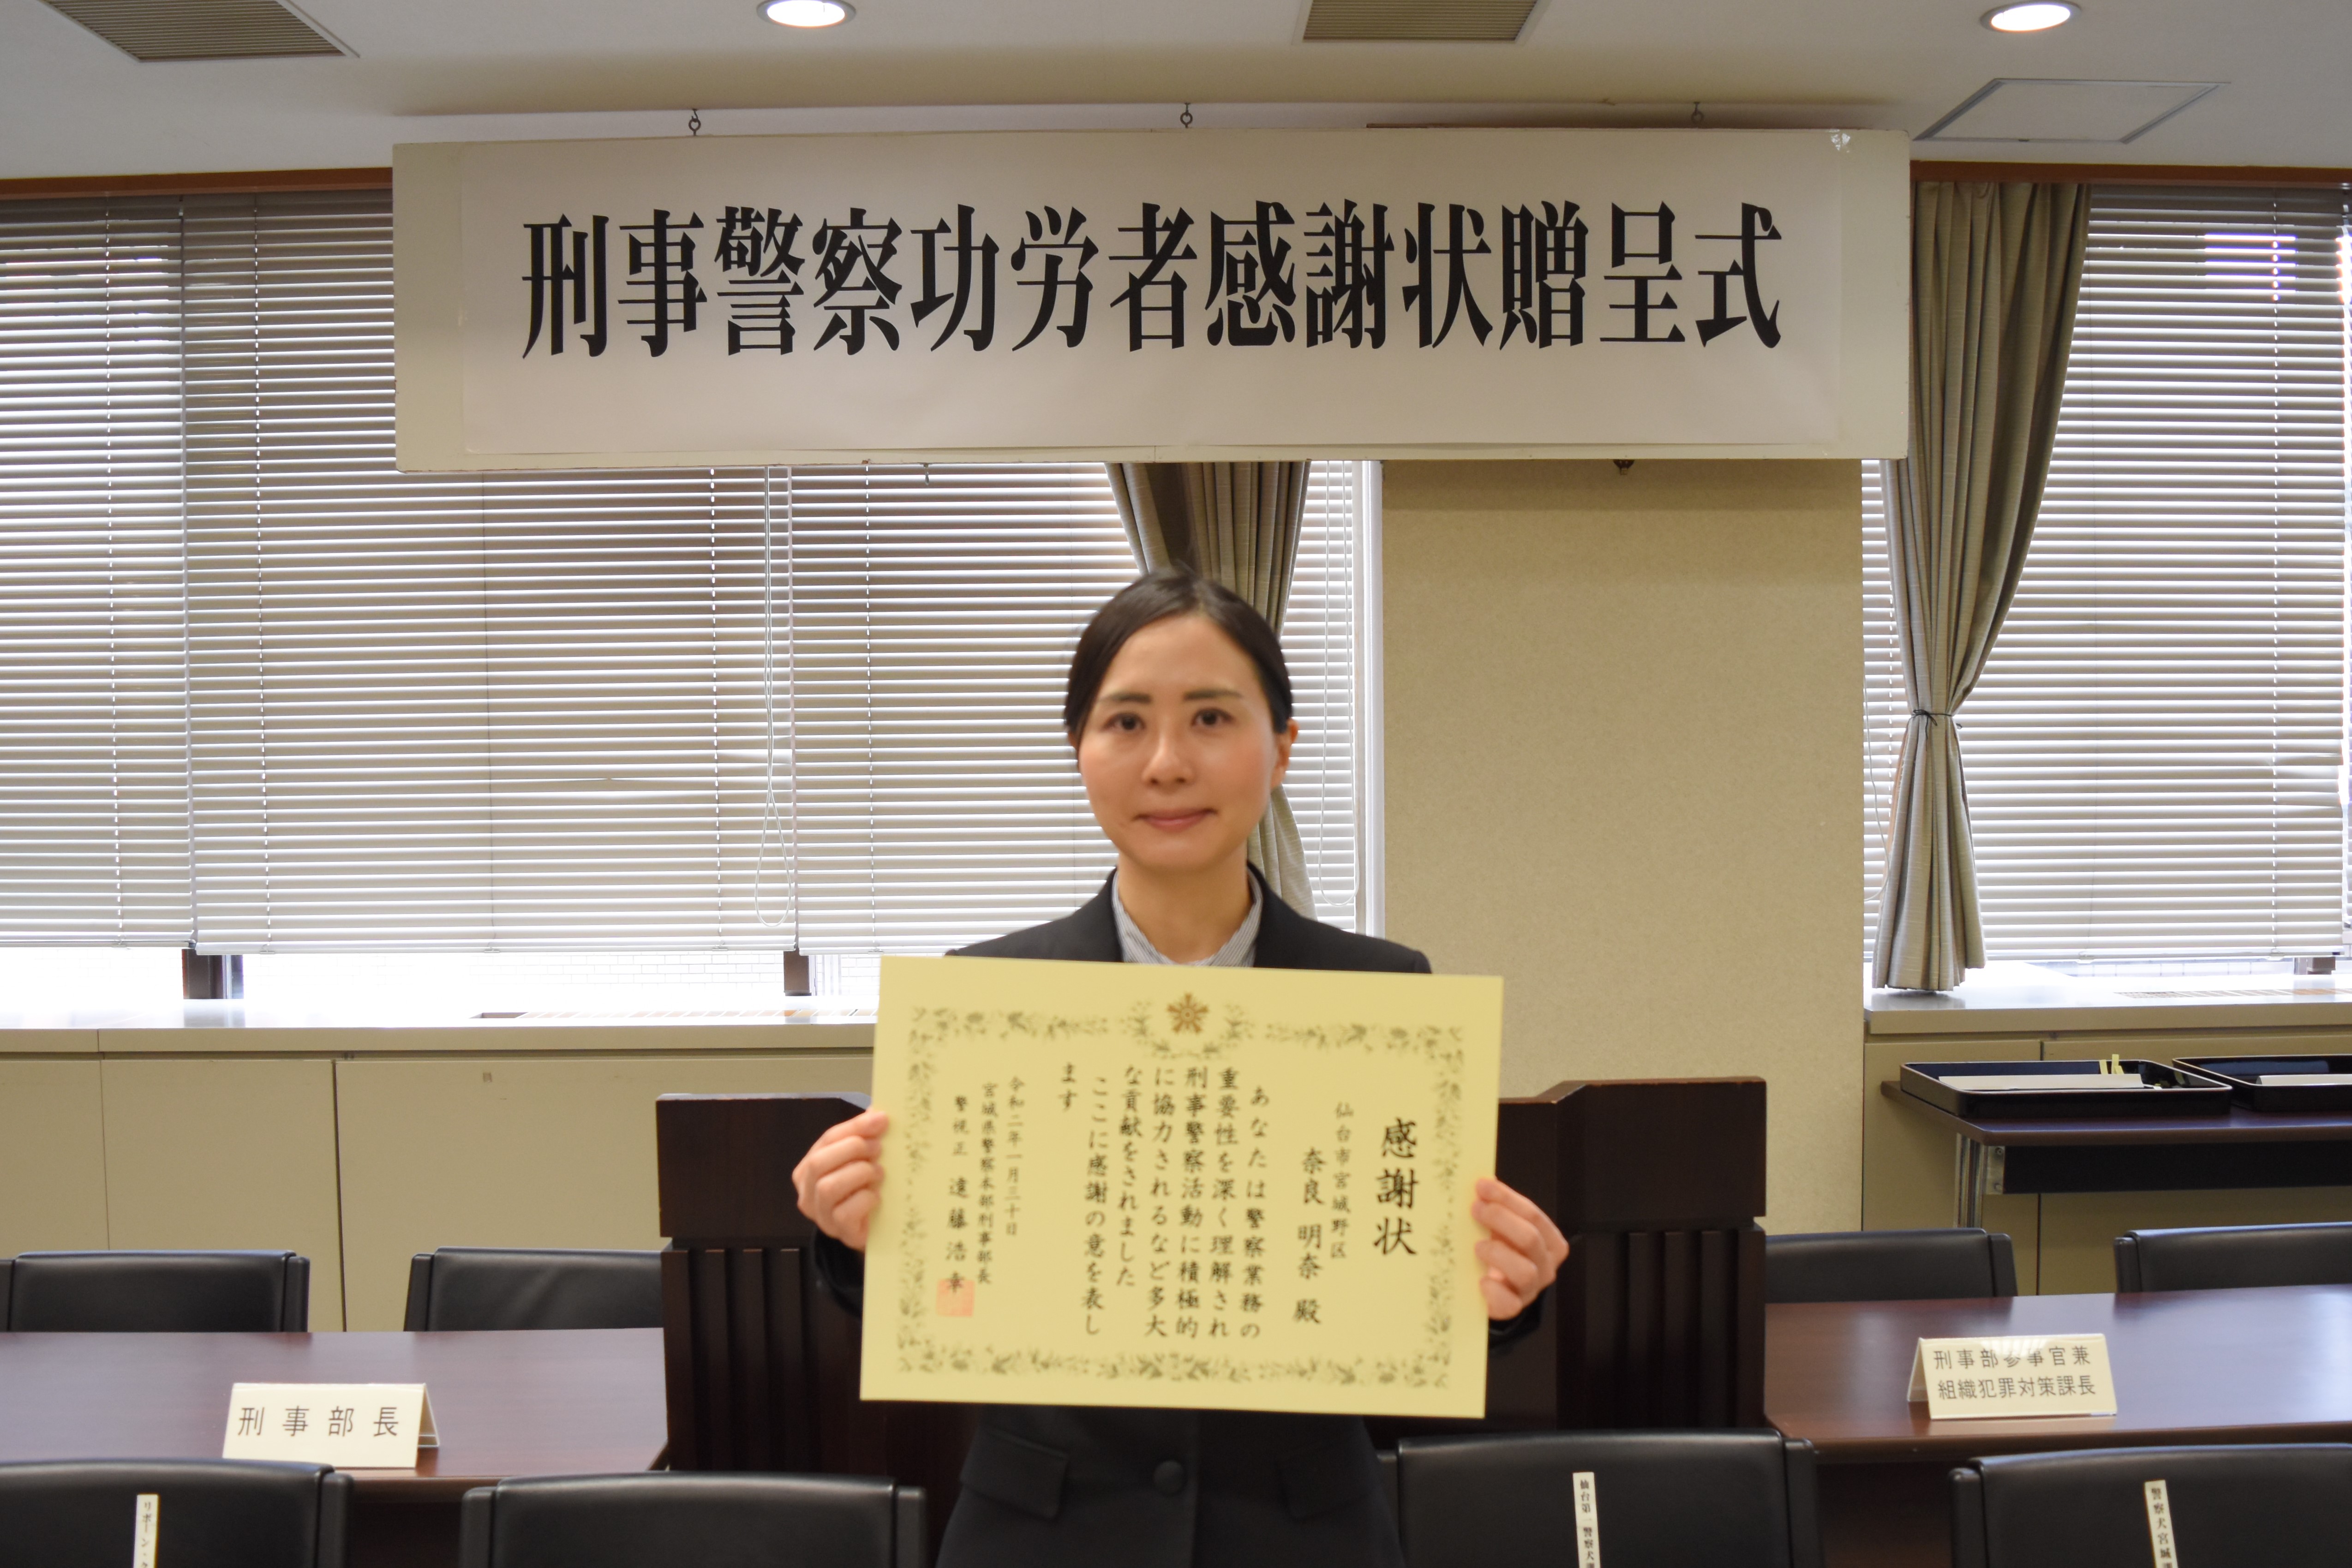 刑事警察功労者感謝状贈呈式
感謝状
仙台市宮城野区
奈良 明奈 殿
あなたは警察業務の
重要性を深く理解され
刑事警察活動に積極的
に協力されるなど多大
な貢献をされました
ここに感謝の意を表し
ます
令和二年一月三十日
宮城県警察本部刑事部長
警視正 遠藤 浩幸
刑事部長
刑事部参事官兼
組織犯罪対策課長
リボーン・
仙台第一警察犬
警察犬宮城